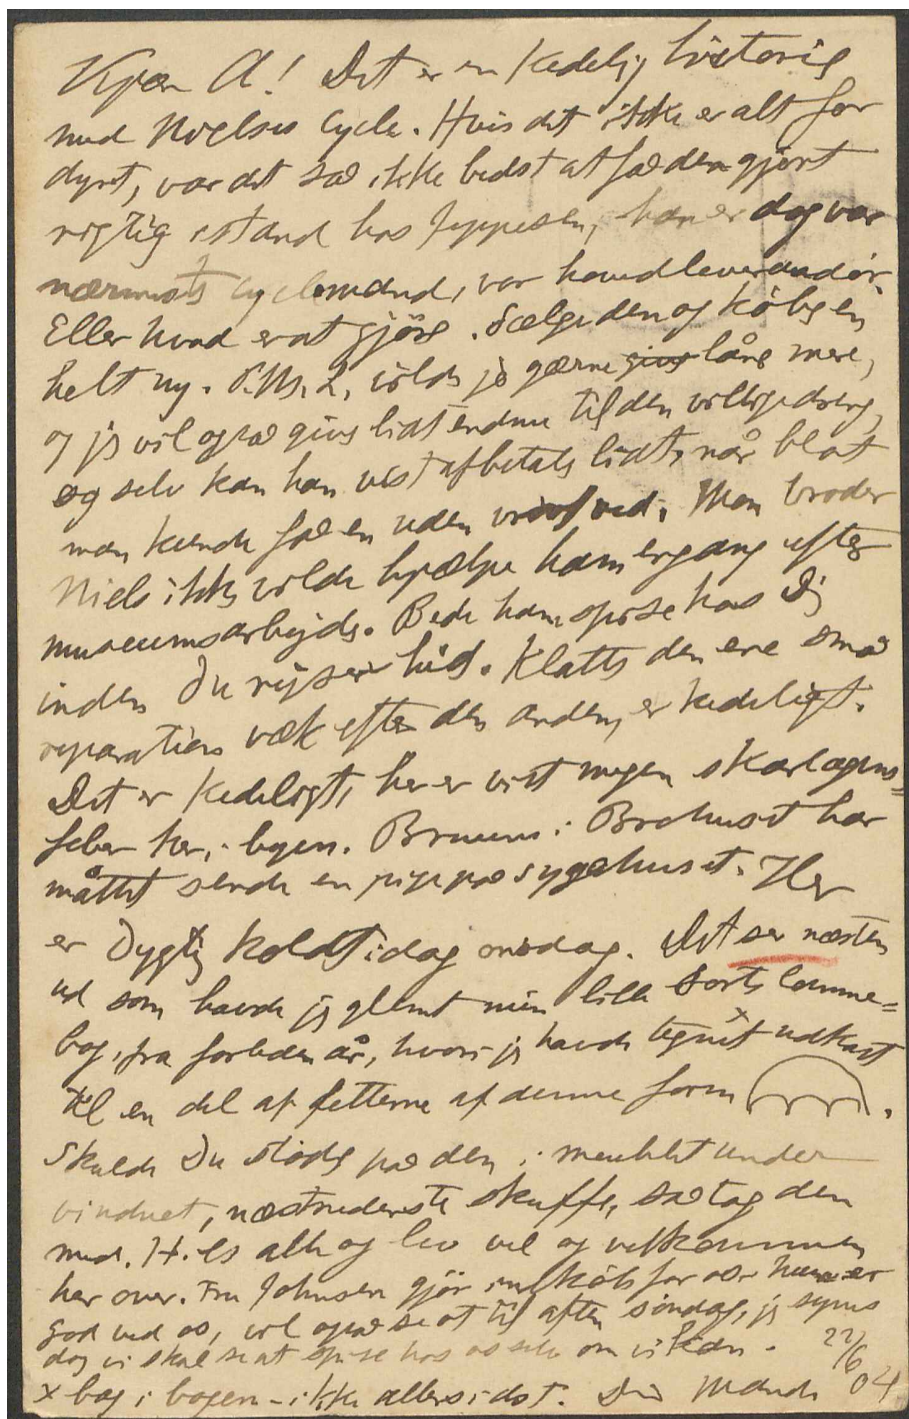 Kjær A! Det er en kedelig historie
med Nielses cycle. Hvis det ikke er alt for
dyrt, var det så ikke bedst at få den gjort
rigtig istand hos Jeppesen, han er dog vor
nærmeste cyclemand, vor hovedleverandør.
Eller hvad er at gjöre. Sælge den og köbe en
helt ny. P.M.L. vilde jo gærne give låne mere,
og jeg vil også give lidt endnu til den villige dreng,
og selv kan han vist afbetale lidt, når blot
man kunde få en uden vrøvl ved. Mon broder
Niels ikke vilde hjælpe ham engang efter
museumsarbejde. Bede ham spise hos Dig
inden Du rejser hid. Klatte den ene små
reparation væk efter den anden, er kedeligt.
Det er kedeligt, her er vist megen skarlagens=
feber her i byen. Bruuns i Brohuset har
måttet sende en pige på sygehuset. Her
er dygtig koldt idag onsdag. Det ser næsten
ud som havde jeg glemt min lille sorte lomme=
bog, fra forleden år, hvori jeg havde tegnet x udkast
til en del af fletterne af denne form .
Skulde Du støde på den i meublet under
vinduet, næstnederste skuffe, så tag den
med. Hils alle og lev vel og velkommen
her over. Fru Johnsen gjör indköb for os, hun er
god ved os, vil også se at til aften söndag, jeg synes
dog vi skal se at spise hos os selv om vi kan. 22/6 04
x bag i bogen - ikke allersidst. Din Mand